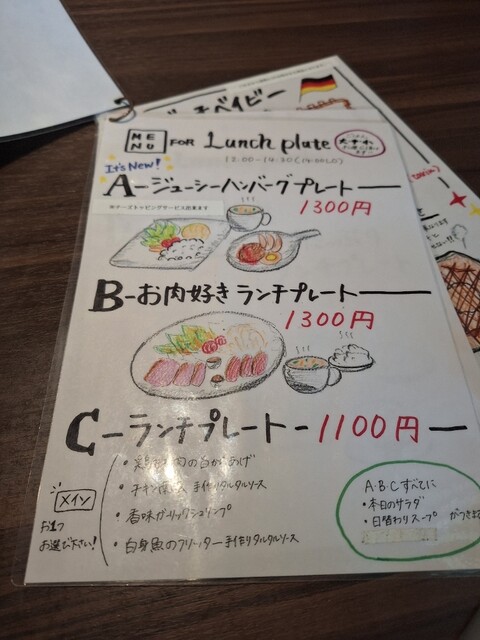 MENU FOR Lunch plate
12:00-14:30(14:00LO)
It's New!
A-ジューシーハンバーグプレート
※チーズトッピングサービス出来ます
1300円
B-お肉好きランチプレート
1300円
C-ランチプレート-1100円
メイン
お1つ
お選び下さい!
・香味ガーリックシュリンプ
・白身魚のフリッター手作りタルタルソース
手作りタルタルソース
A・B・Cすべてに
・本日のサラダ
・日替わりスープ
がつきます
ベイビー